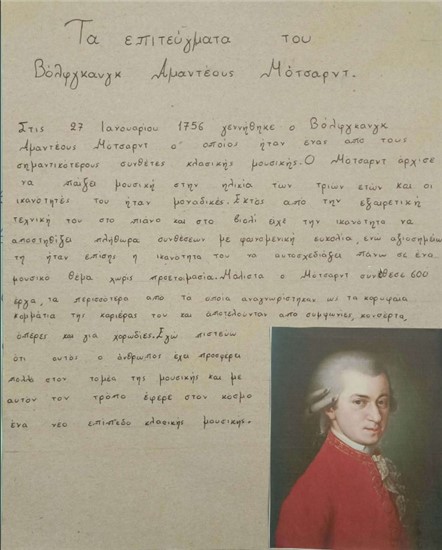 Τα επιτεύγματα του
Βόλφγκανγκ Αμαντέους Μότσαρντ.
Στις 27 Ιανουαρίου 1756 γεννήθηκε ο Βόλφγκανγκ
Αμαντέους Μότσαρντ ο οποίος ήταν ένας από τους
σημαντικότερους συνθέτες κλασικής μουσικής. Ο Μότσαρντ άρχισε
να παίζει μουσική στην ηλικία των τριων ετών και οι
ικανότητές του ήταν μοναδικές. Εκτός απο την εξαιρετική
τεχνική του στο πιάνο και στο βιολί είχε την ικανότητα να
αποστηθίζει πληθώρα συνθέσεων με φαινομενική ευκολία, ενώ αξιοσημείω
τη ήταν επίσης η ικανότητα του να αυτοσχεδιάζει πάνω σε ένα
μουσικό θέμα χωρίς προετοιμασία. Μάλιστα ο Μότσαρντ συνέθεσε 600
έργα, τα περισσότερα από τα οποία αναγνωρίστηκαν ως τα κορυφαία
κομμάτια της καριέρας του και αποτελούνταν από συμφωνίες, κονσέρτα,
όπερες και για χορωδίες. Εγώ πιστεύω
ότι αυτός ο άνθρωπος έχει προσφέρει
πολλά στον τομέα της μουσικής και με
αυτόν τον τρόπο έφερε στον κόσμο
ένα νέο επίπεδο κλασικής μουσικής.